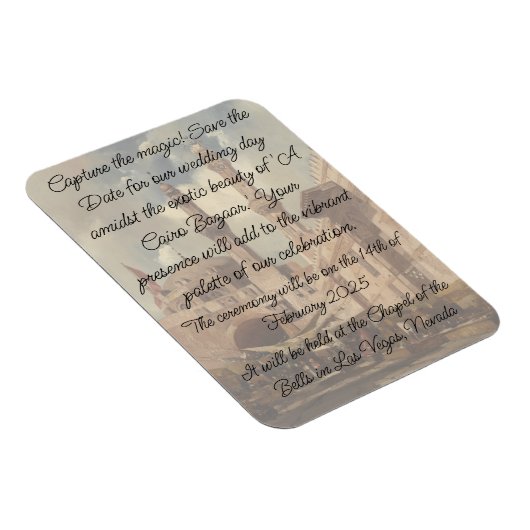 Capture the magic! Save the
Date for our wedding day
amidst the exotic beauty of 'A
Cairo Bazaar.' Your
presence will add to the vibrant
palette of our celebration.
The ceremony will be on the 14th of
February 2025
It will be held at the Chapel of the
Bells in Las Vegas, Nevada